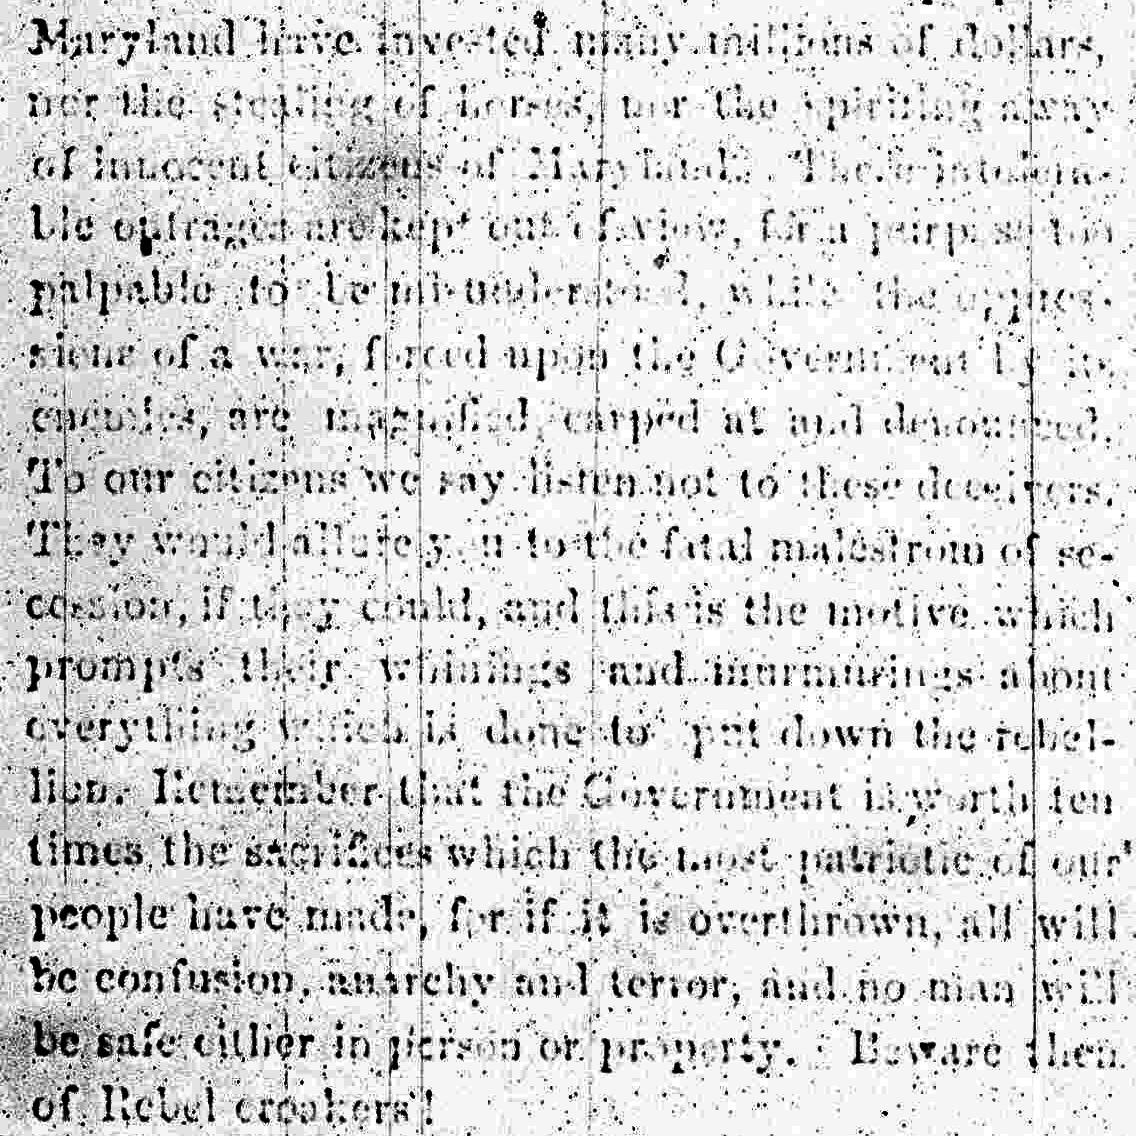 Maryland have invested many millions of dollars,
nor the stealing of horses, nor the spiriting away
of innocent citizens of Maryland. These intolera-
ble outrages are kept out of view, for a purpose too
palpable to be misunderstood, while the oppres-
sions of a war, forced upon the Government by its
enemies, are magnified, carped at and denounced.
To our citizens we say listen not to these deceivers.
They would allure you to the fatal malestrom of se-
cession, if they could, and this is the motive which
prompts their whinings and murmurings about
everything which is done to put down the rebel-
lion. Remember that the Government is worth ten
times the sacrifices which the most patriotic of our
people have made, for if it is overthrown, all will
be confusion, anarchy and terror, and no man will
be safe either in person or property. Beware then
of Rebel croakers!